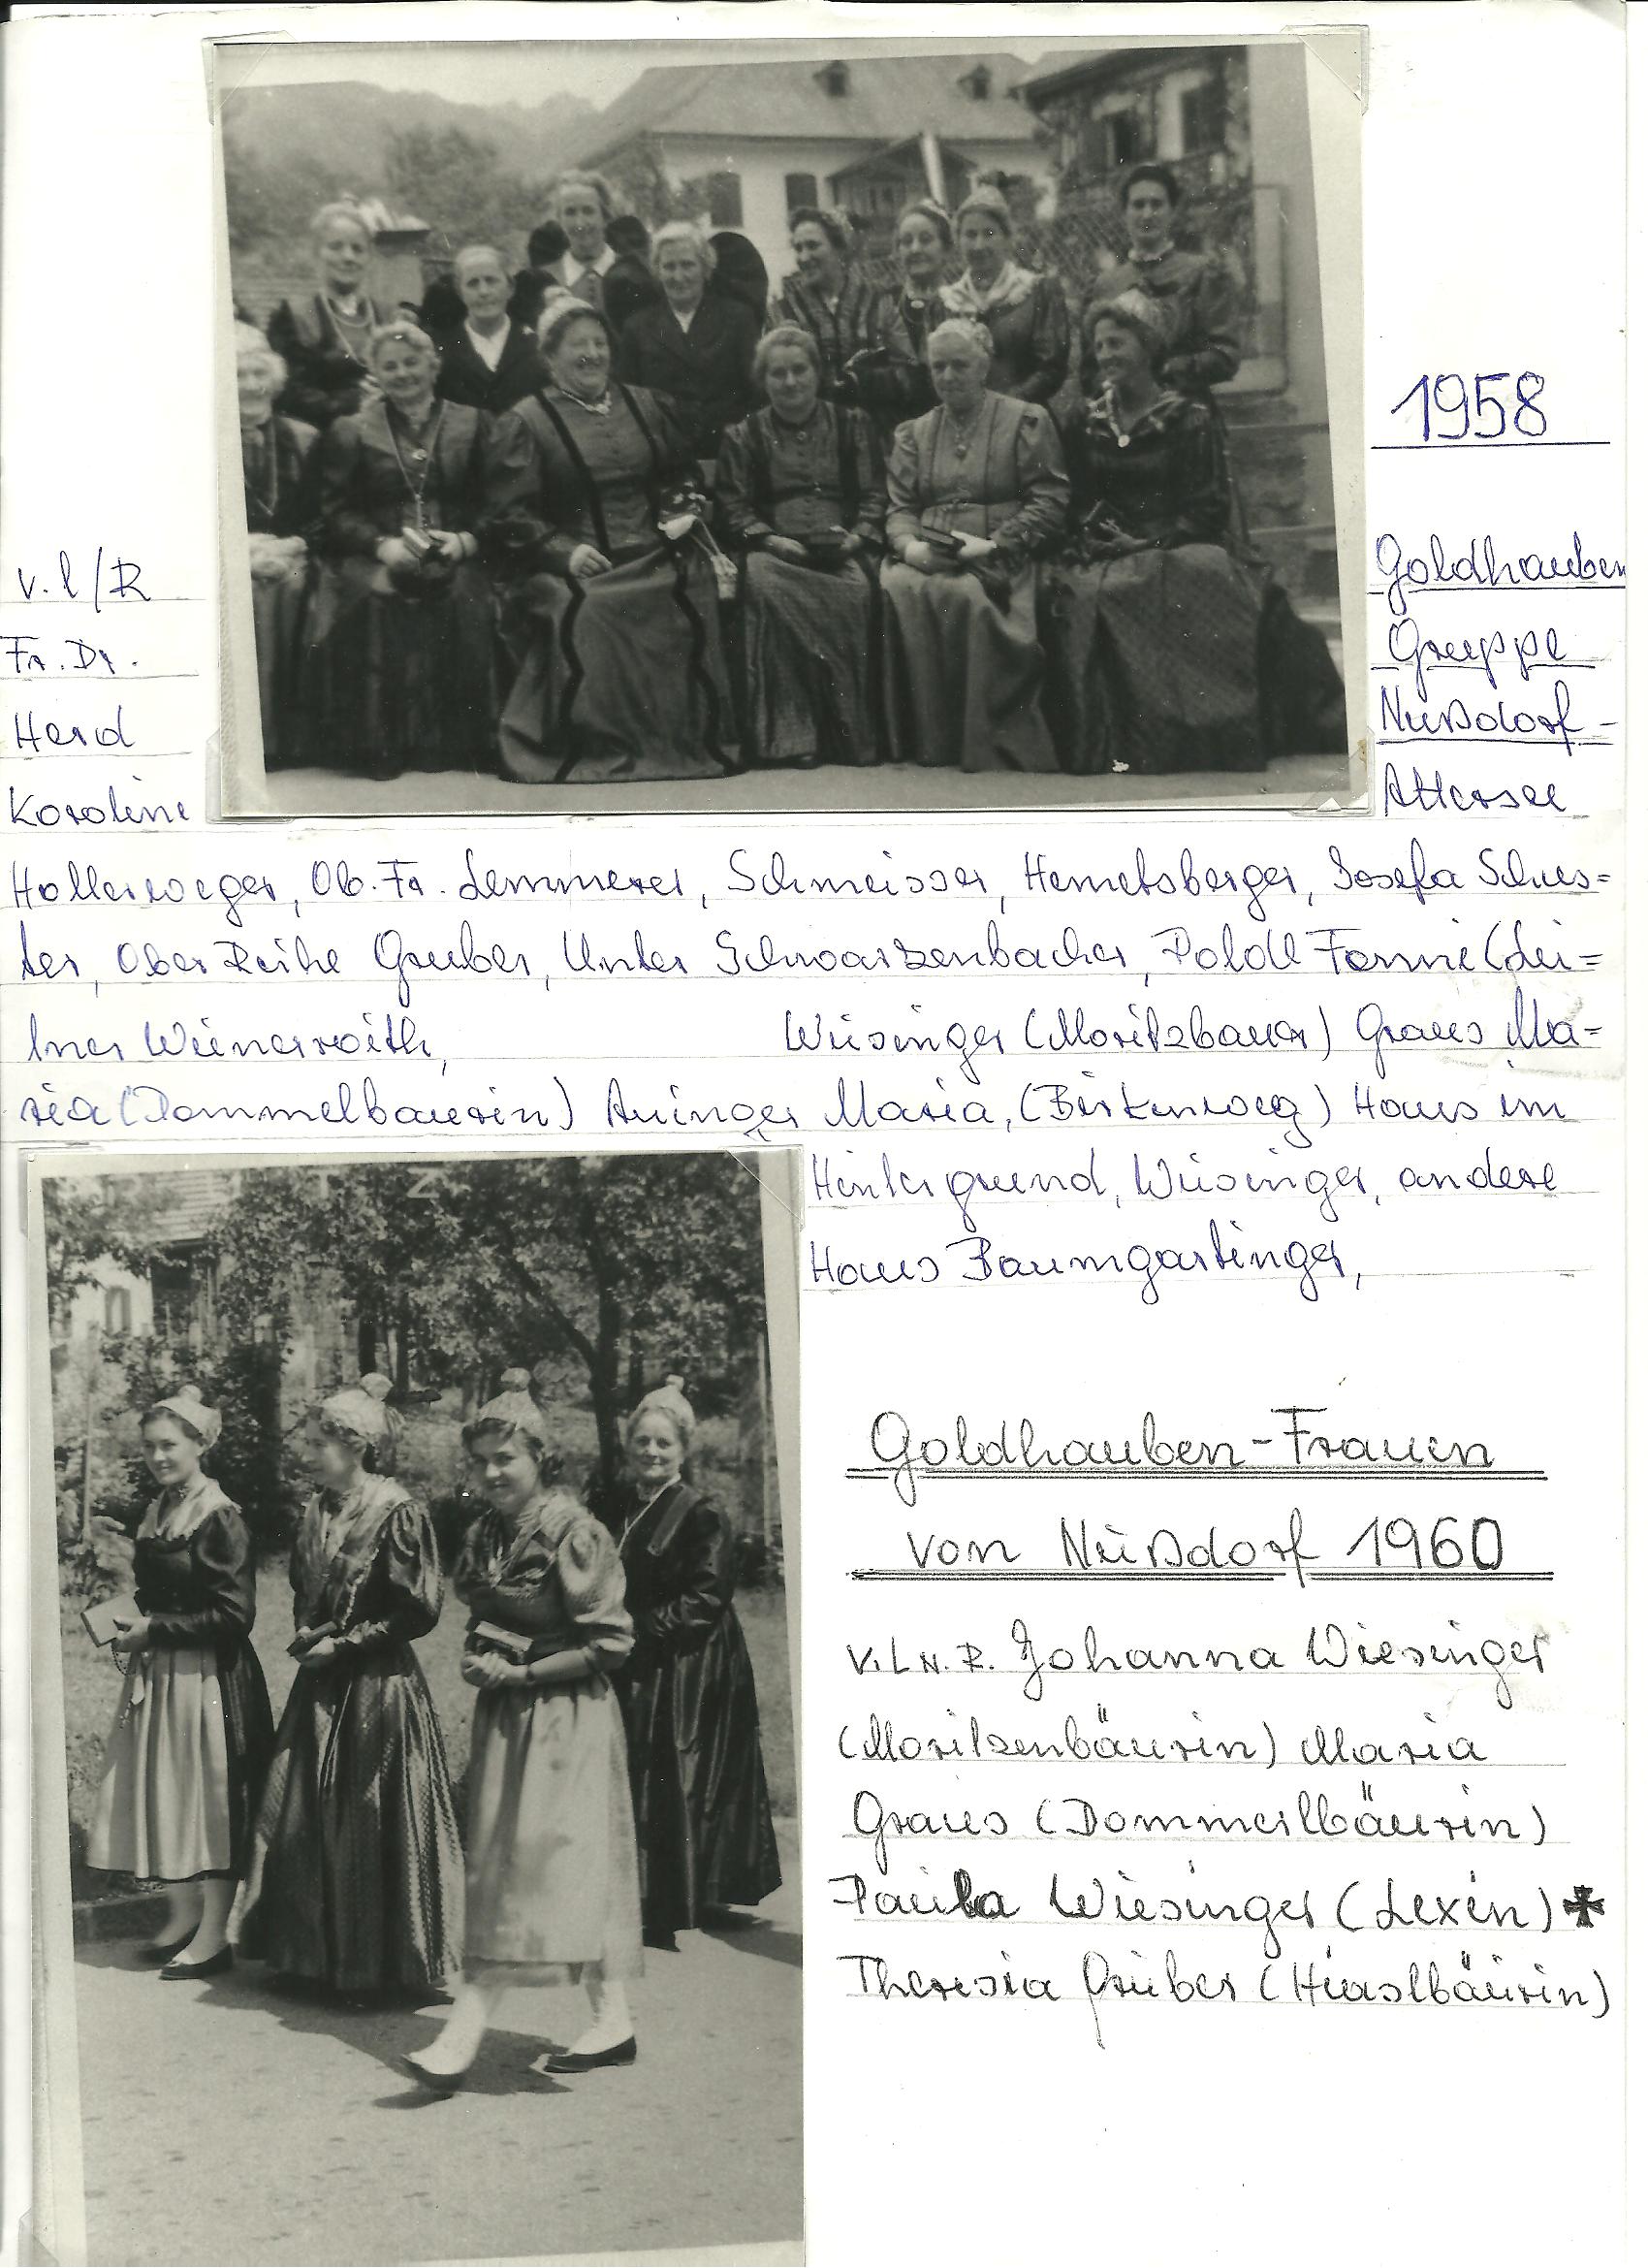 1958
Goldhauben
Gruppe
Nußdorf-
Attersee
v. l/R
Fr. Dr.
Herd
Karoline
Hollerweger, Ob. Fr. Lemmerer, Schmeisser, Hemetsberger, Josefa Schus=
ter, Ober Reihe Gruber, Unter Schwarzenbacher, Poldl Fannie (Lei=
tner Wienerroith, Wiesinger (Moritzbauer) Graus Ma=
ria (Dommelbauerin) Aninger Maria, (Birkenweg) Haus im
Hintergrund, Wiesinger, andere
Haus Baumgartinger,
Goldhauben-Frauen
von Nußdorf 1960
V.L N. R. Johanna Wiesinger
(Moritzenbäurin) Maria
Graus (Dommerlbäurin)
Paula Wiesinger (Lexen) ✠
Theresia Gruber (Hiaslbäurin)